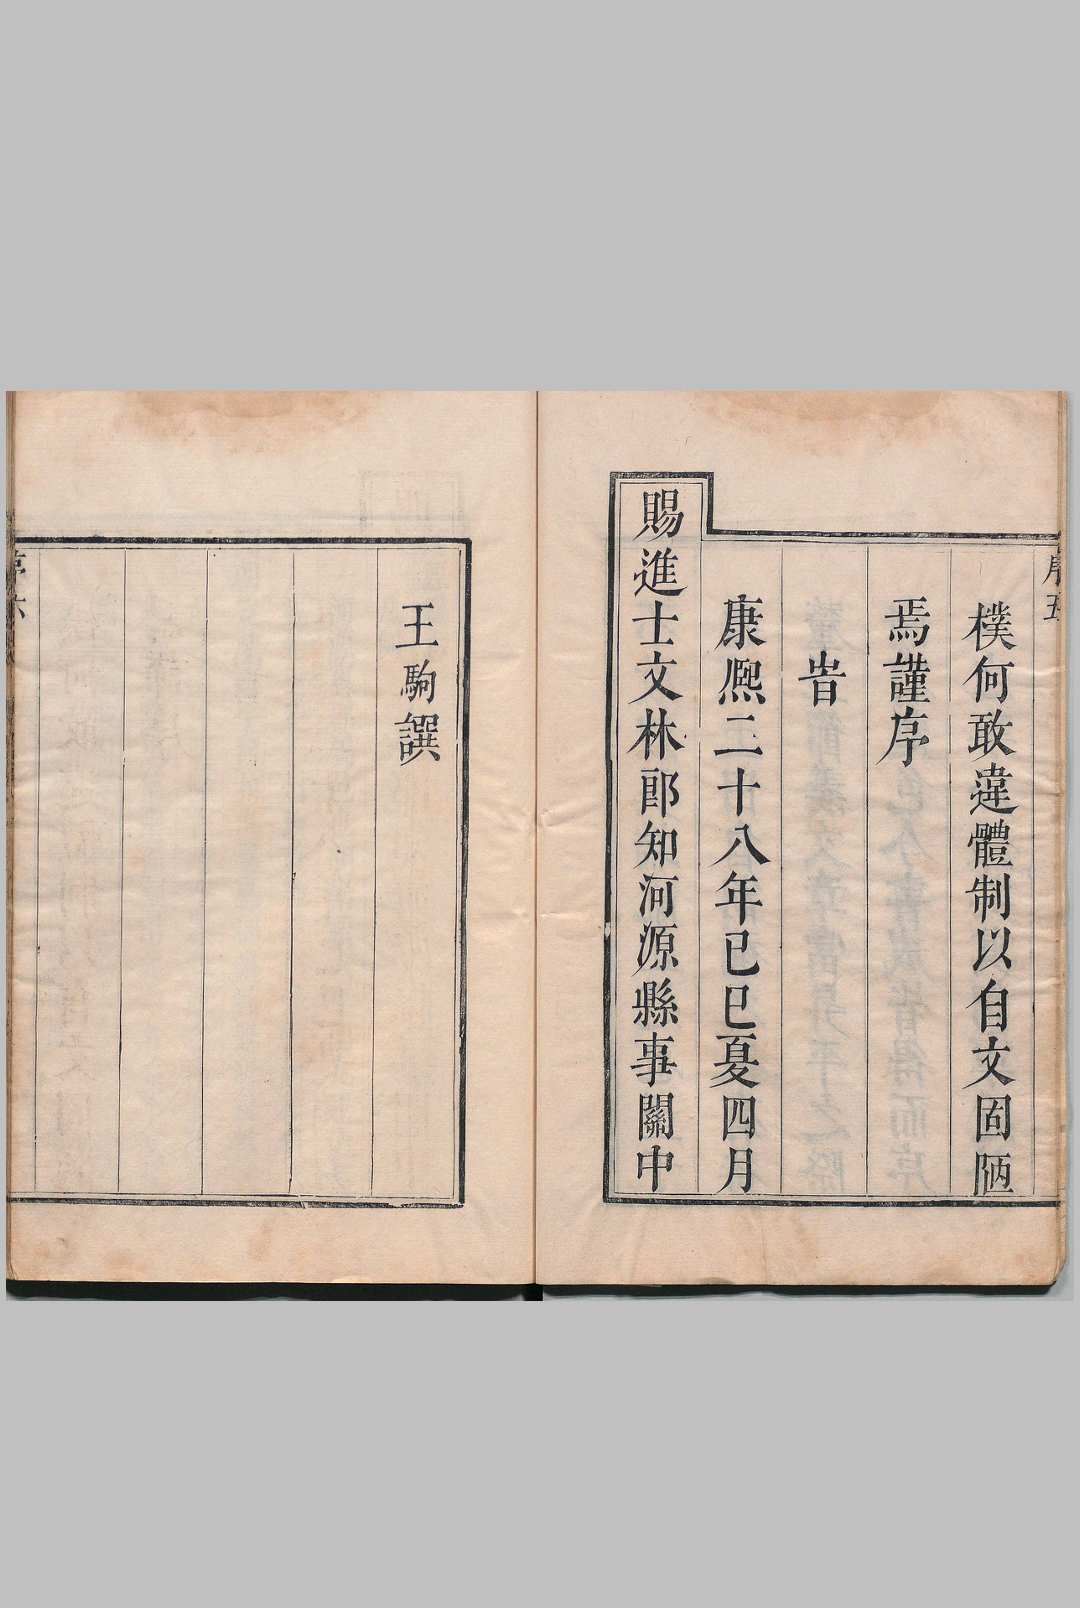 序五
樸何敢違體制以自文固陋
焉謹序
旹
康熈二十八年已巳夏四月
賜進士文林郎知河源縣事關中
王駒譔
序六